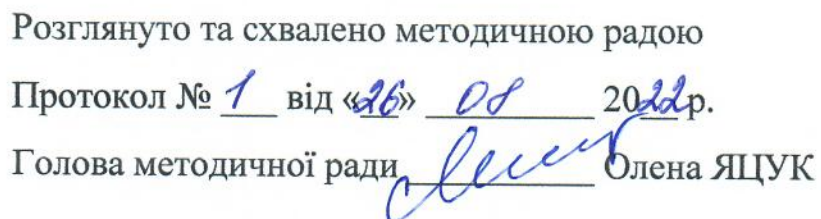 Розглянуто та схвалено методичною радою
Протокол № 1 від «26» 08 2022р.
Голова методичної ради Олена ЯЦУК